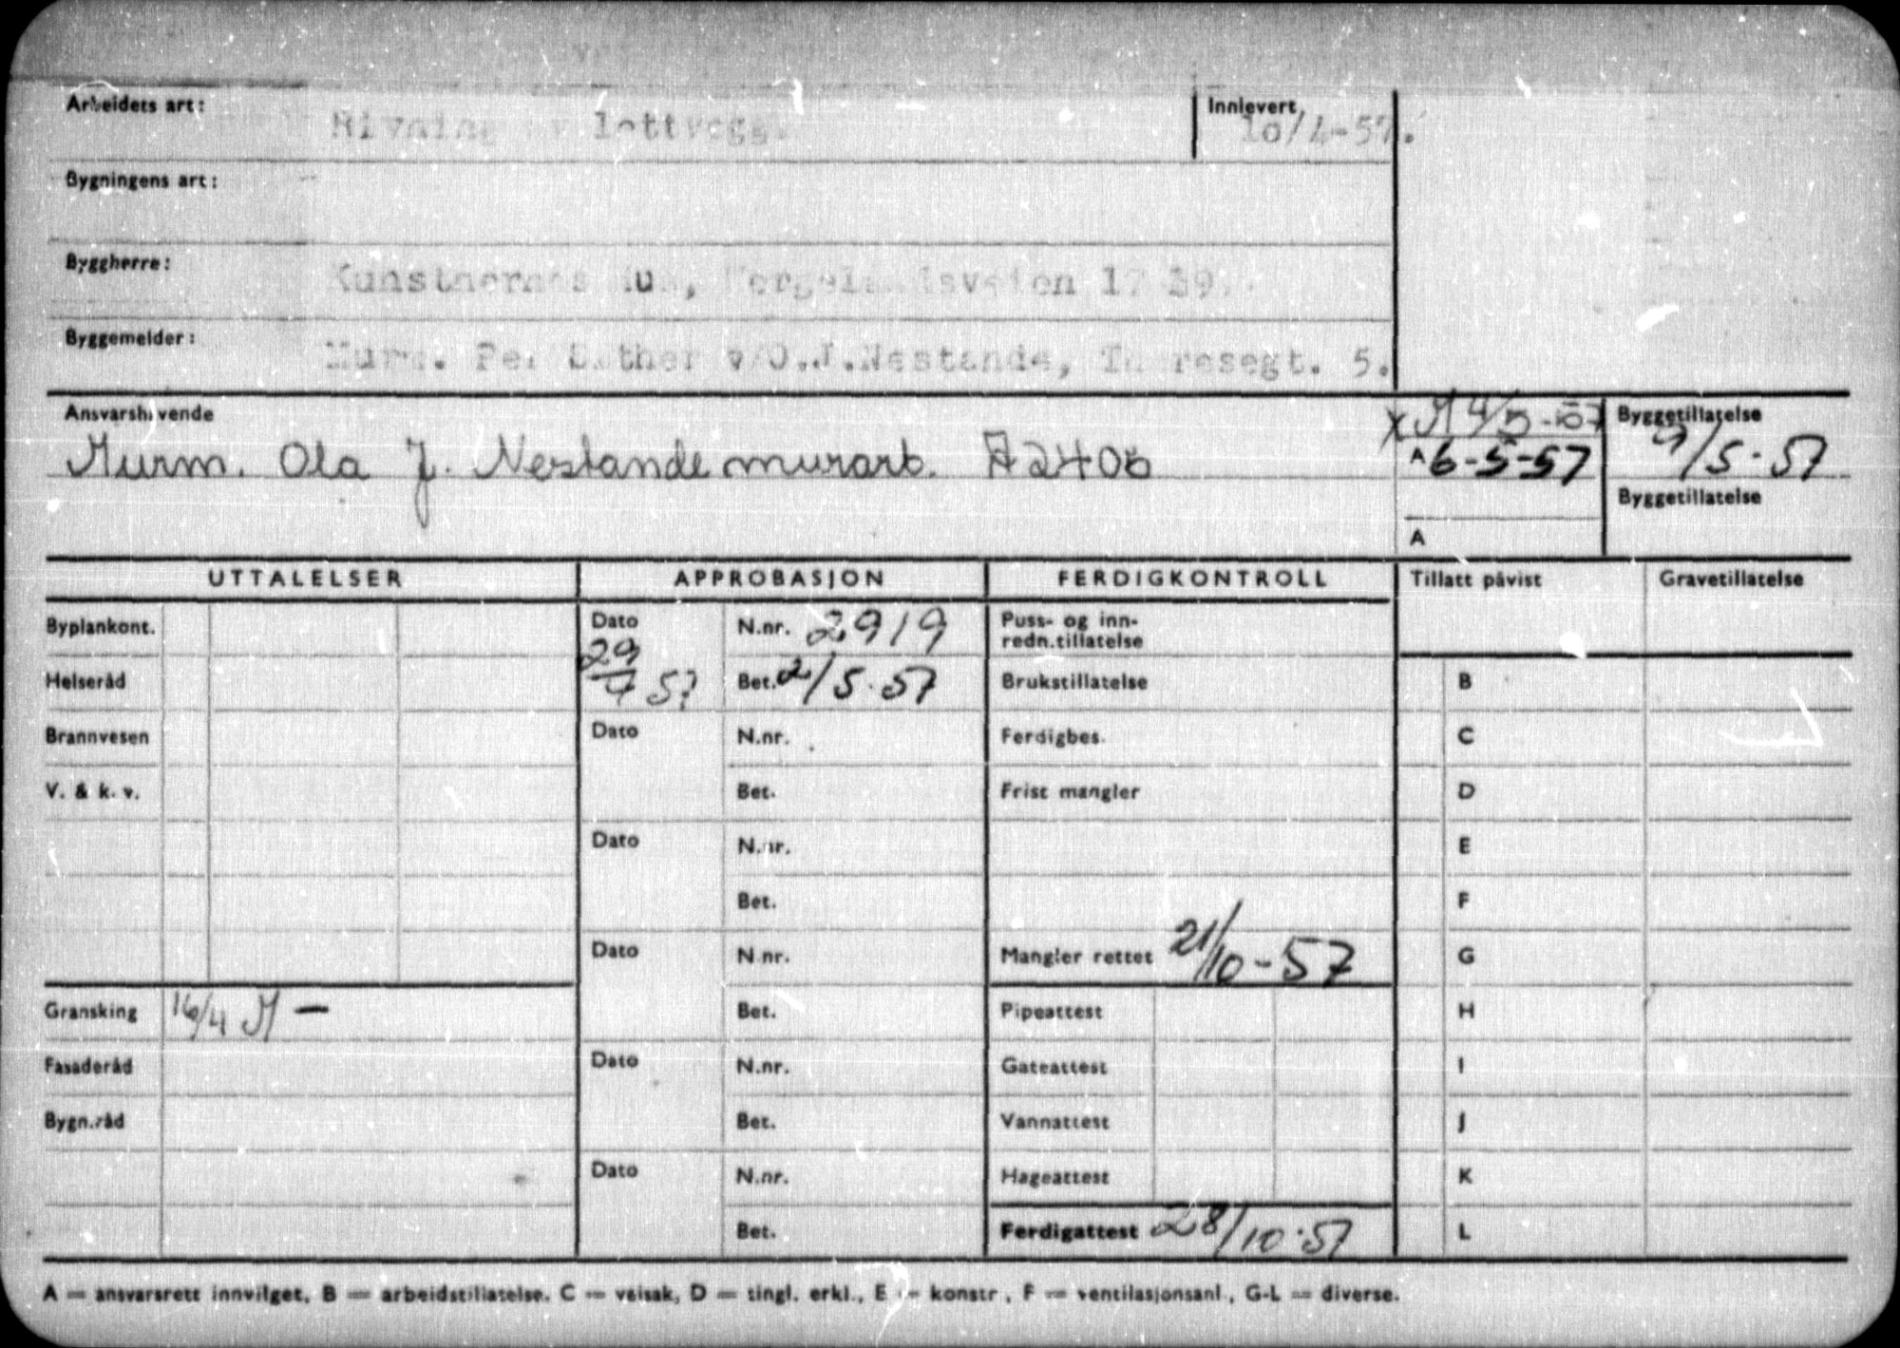 Arbeidets art: Rivning av lettvegg.
Innlevert 10/4-57.
Bygningens art:
Byggherre: Kunstnernes Hus, Wergelandsveien 17
Byggemelder: Murm. Per Sæther v/O.J.Nestande, Theresegt. 5.
Ansvarshavende
Murm. Ola J. Nestande murarb.
4/5-57
A 6-5-57
A
Byggetillatelse
9/5-57
Byggetillatelse
UTTALELSER APPROBASJON FERDIGKONTROLL Tillatt påvist Gravetillatelse
Byplankont. Dato N.nr. 2919 Puss- og inn-
redn.tillatelse
Helseråd 29/4 57 Bet. 2/5-57 Brukstillatelse B
Brannvesen Dato N.nr. Ferdigbes. C
V. & k. v. Bet. Frist mangler D
Dato N.nr. E
Bet. F
Dato N.nr. Mangler rettet 21/10-57 G
Gransking 16/4 M — Bet. Pipeattest H
Fasaderåd Dato N.nr. Gateattest I
Bygn.råd Bet. Vannattest J
Dato N.nr. Hageattest K
Bet. Ferdigattest 28/10-57 L
A — ansvarsrett innvilget, B — arbeidstillatelse, C — veisak, D — tingl. erkl., E — konstr., F — ventilasjonsanl., G-L — diverse.